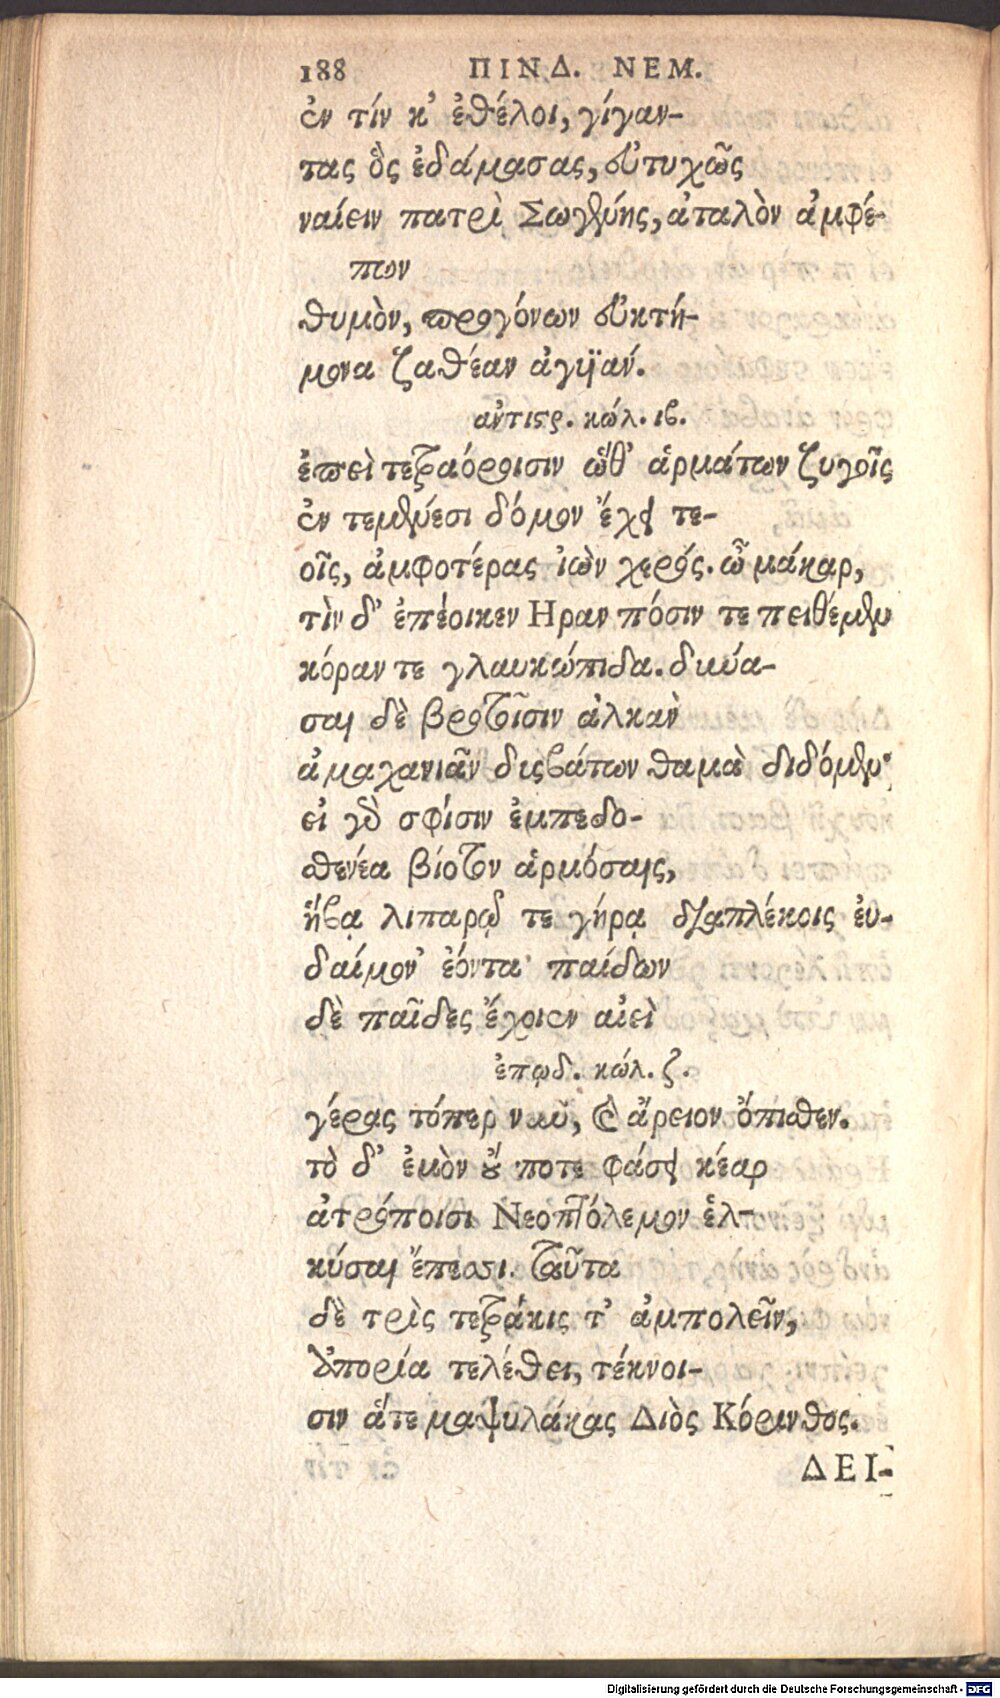 188 ΠΙΝΔ. ΝΕΜ.
ἐν τίν κ' ἐθέλοι, γίγαν-
τας ὃς ἐδάμασας, εὐτυχῶς
ναίειν πατρὶ Σωγένης, ἀταλὸν ἀμφέ-
πων
θυμὸν, προγόνων εὐκτή-
μονα ζαθέαν ἀγυιάν.
αντιστρ. κώλ. ιβ.
ἐπεὶ τετραόροισιν ὥθ' ἁρμάτων ζυγοῖς
ἐν τεμένεσι δόμον ἔχει τε-
οῖς, ἀμφοτέρας ἰὼν χερός. ὦ μάκαρ,
τὶν δ' ἐπέοικεν Ηραν πόσιν τε πειθέμεν
κόραν τε γλαυκώπιδα. δικύα-
σαι δὲ βροτοῖσιν ἀλκὰν
ἀμαχανιᾶν δισβάτων θαμὰ διδόμεν·
εἰ γὰρ σφίσιν ἐμπεδο-
σθενέα βίοτον ἁρμόσαις,
ἥβᾳ λιπαρῷ τε γήρᾳ διαπλέκοις ἐυ-
δαίμον' ἐόντα· παίδων
δὲ παῖδες ἔχοιεν αἰεὶ
ἐπῳδ. κώλ. ζ.
γέρας τόπερ νῦν, καὶ ἄρειον ὄπισθεν.
τὸ δ' ἐμὸν οὔ ποτε φάσει κέαρ
ἀτρόποισι Νεοπτόλεμον ἑλ-
κύσαι ἔπεσσι. ταῦτα
δὲ τρὶς τετράκις τ' ἀμπολεῖν,
ἀπορία τελέθει, τέκνοι-
σιν ἅτε μαψυλάκας Διὸς Κόρινθος.
ΔΕΙ-
Digitalisierung gefördert durch die Deutsche Forschungsgemeinschaft - DFG